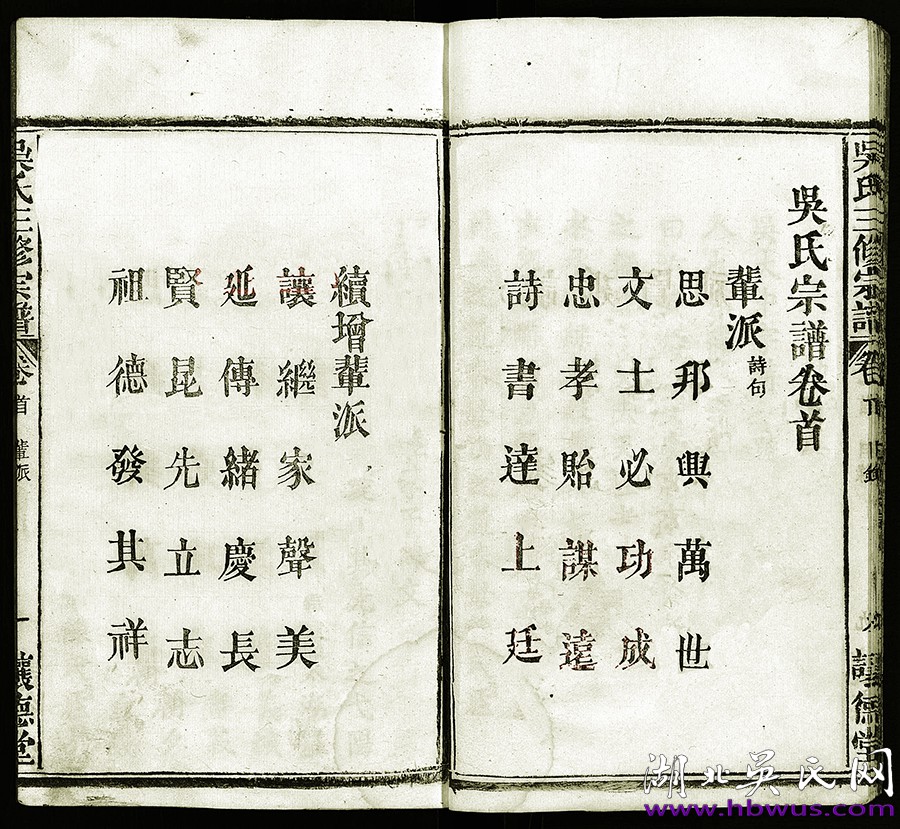 吳氏三修宗譜
讓德堂
吳氏宗譜卷首
輩派詩句
思邦興萬世
文士必功成
忠孝貽謀遠
詩書達上廷
續增輩派
讓繼家聲美
延傳緒慶長
賢昆先立志
祖德發其祥
吳氏三修宗譜
卷首
輩派
一
讓德堂
湖北吴氏网
www.hbwus.com